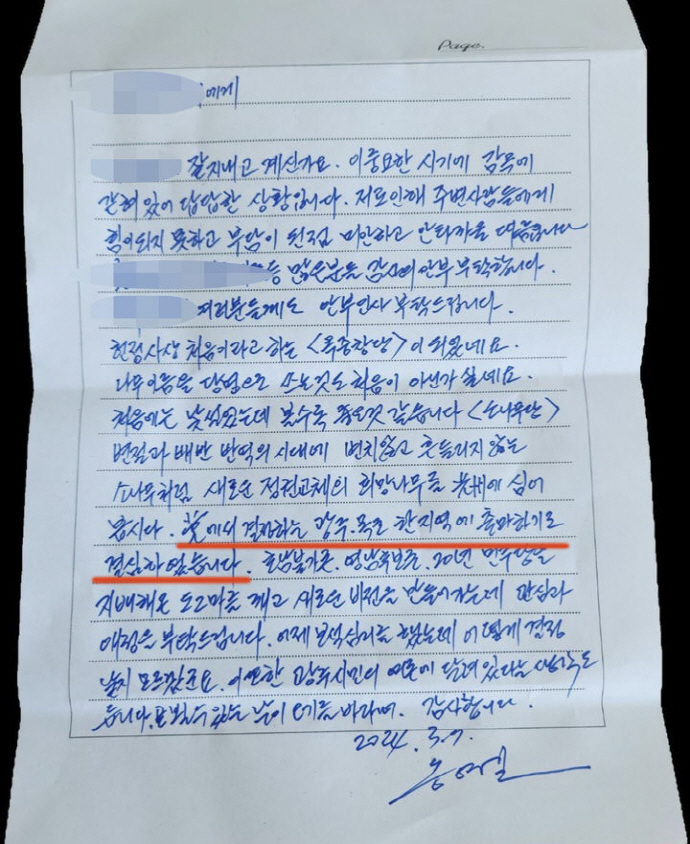 Page.
에게
잘지내고 계신가요. 이중요한 시기에 감옥에
갇혀있어 답답한 상황입니다. 저로인해 주변사람들에게
힘이되지 못하고 부담이 된점 미안하고 안타까울 따름입니다
등 많은분들 감사와 안부 부탁합니다.
여러분들께도 안부인사 부탁드립니다.
헌정사상 처음이라고 하는 <옥중창당>이 되었네요.
나무이름을 당명으로 쓰는것도 처음이 아닌가 싶네요.
처음에는 낯설었는데 볼수록 좋은것 같습니다 <소나무당>
변절과 배반 반역의 시대에 변치않고 흔들리지않는
소나무처럼 새로운 정권교체의 희망나무를 光州에 심어
봅시다. 黨에서 결정하는 광주. 목포 한지역에 출마하기로
결심하였습니다. 호남불가론. 영남후보론. 20년 민주당을
지배해온 도그마를 깨고 새로운 비전을 만들어가는데 관심과
애정을 부탁드립니다. 어제 보석심리를 했는데 어떻게 결정
날지 모르겠군요. 이 또한 광주시민의 여론에 달려있다는 생각도
듭니다. 또 뵐수있는 날이 오기를 바라며. 감사합니다.
2024. 3. 7.
송영길